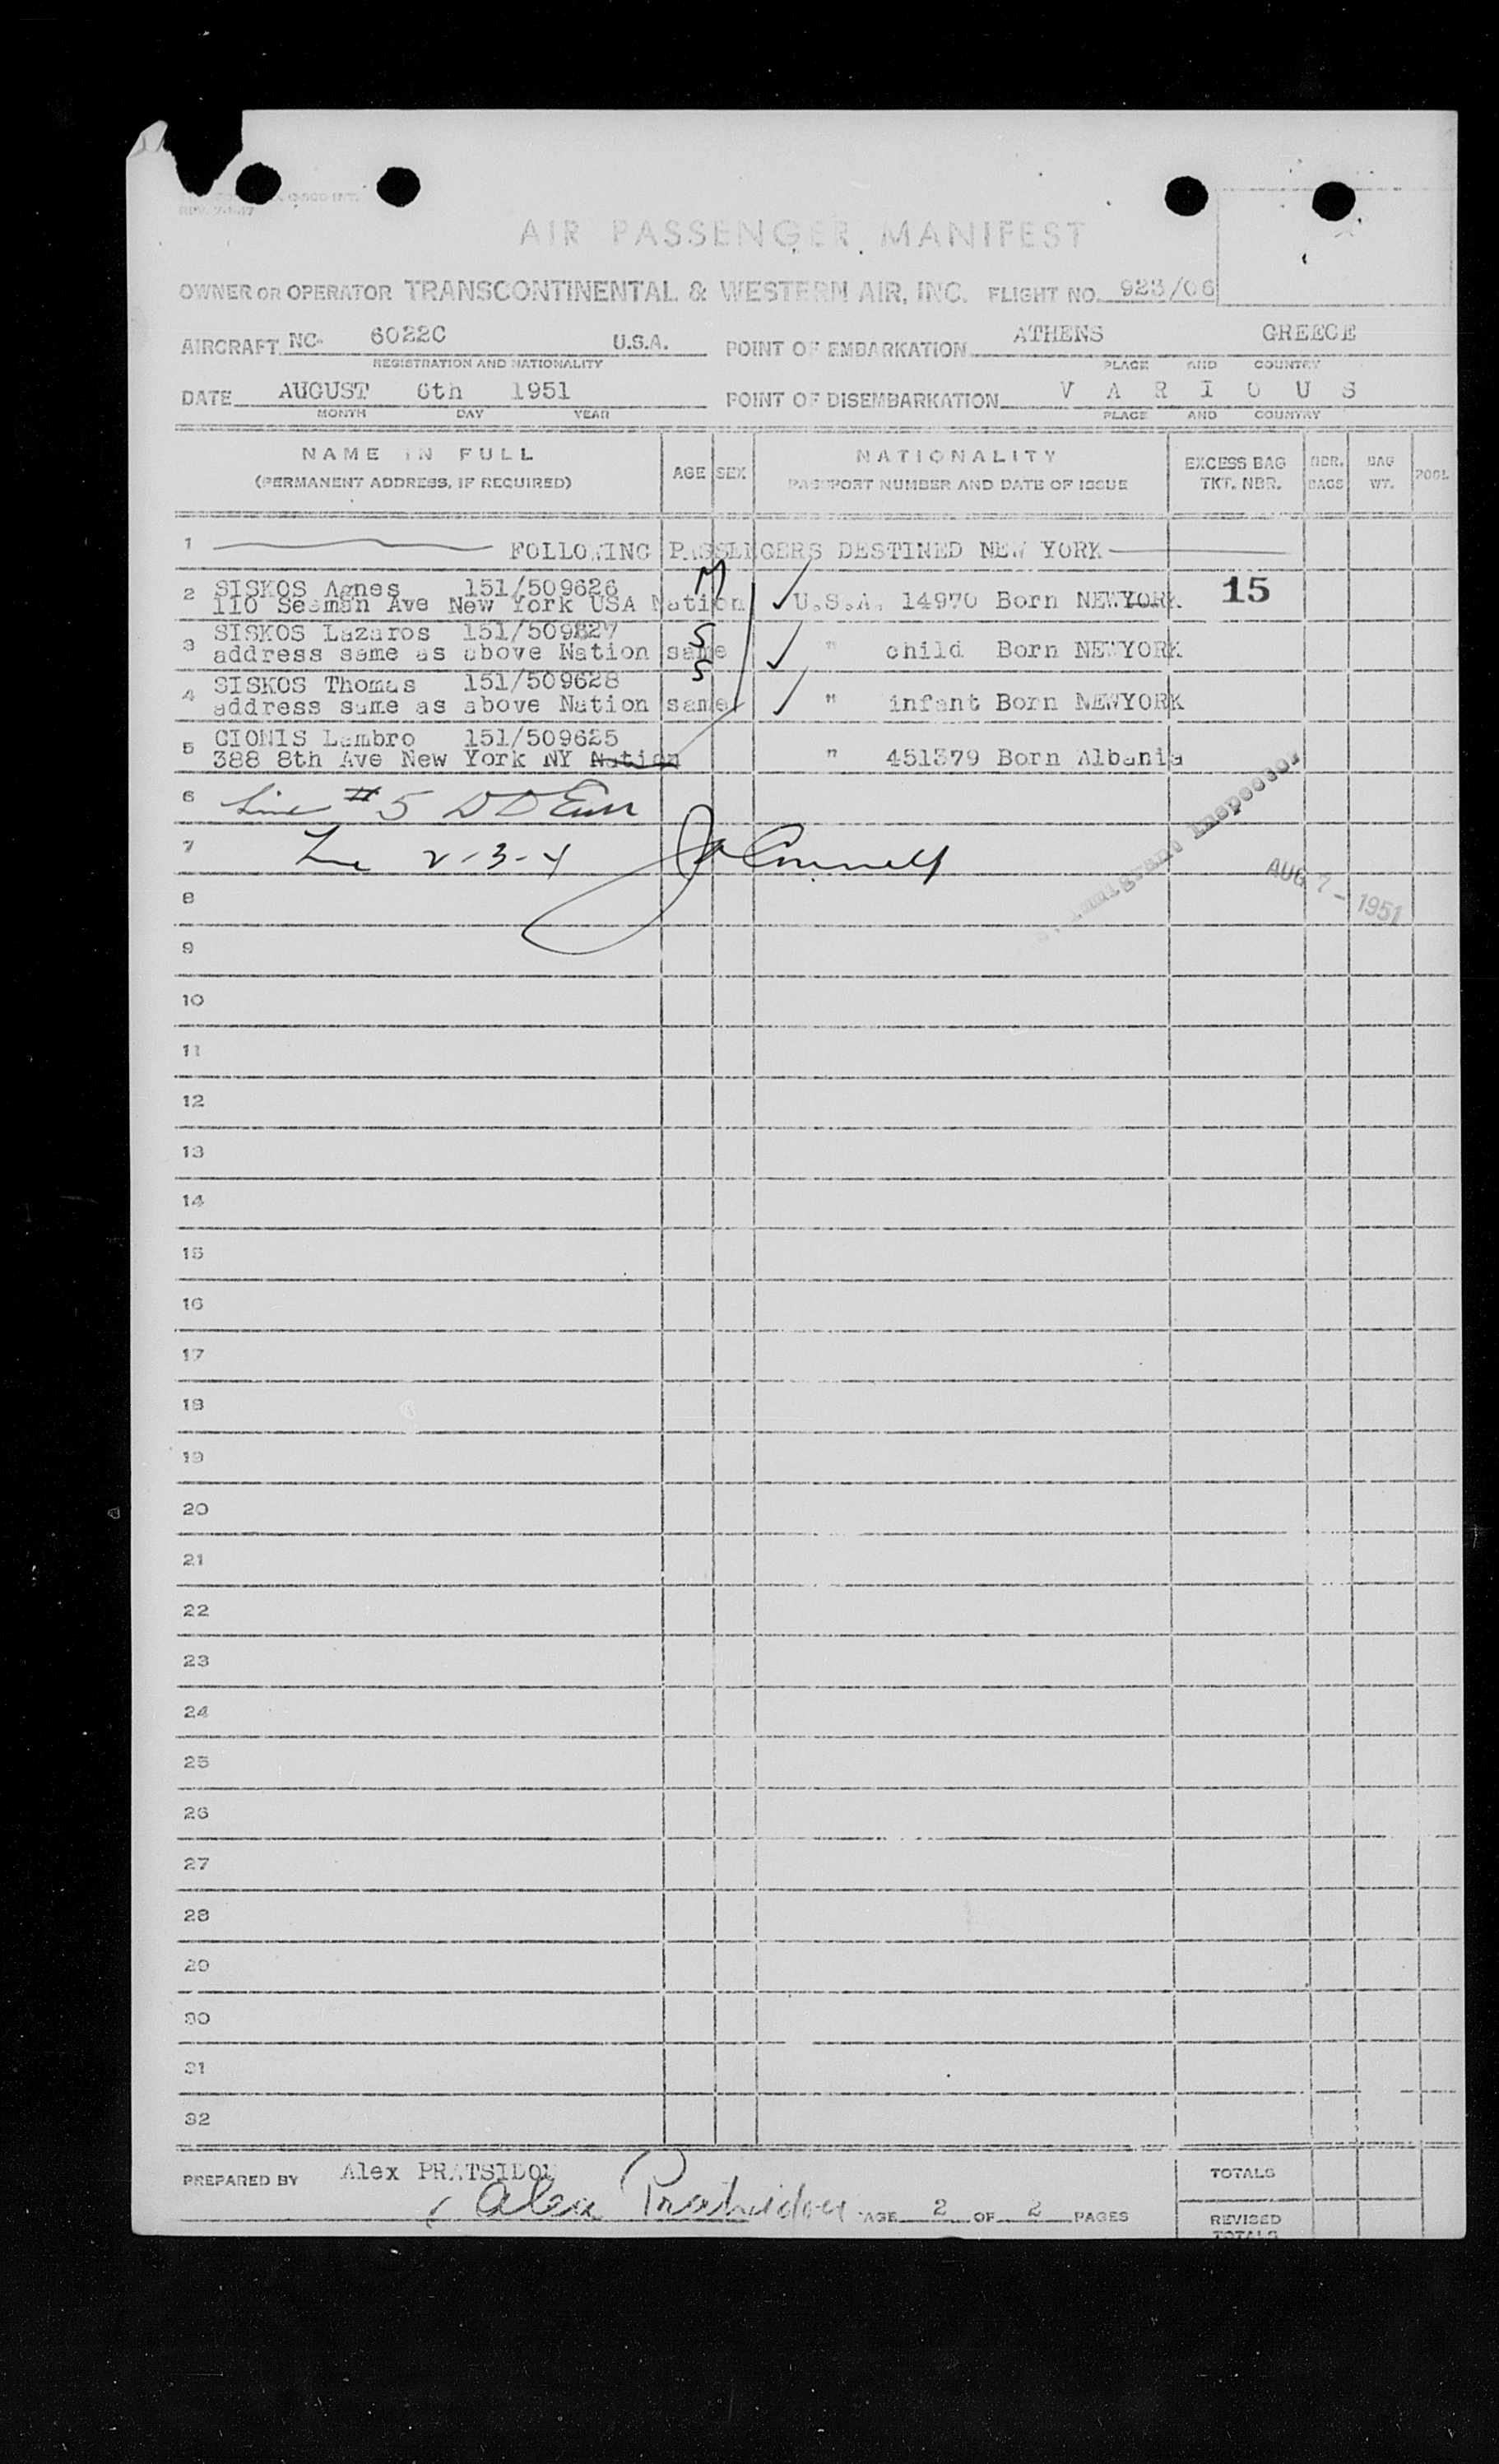 AIR PASSENGER MANIFEST
OWNER OR OPERATOR TRANSCONTINENTAL & WESTERN AIR, INC. FLIGHT NO. 923/06
AIRCRAFT NC- 6022C U.S.A. POINT OF EMBARKATION ATHENS GREECE
REGISTRATION AND NATIONALITY PLACE AND COUNTRY
DATE AUGUST 6th 1951 POINT OF DISEMBARKATION V A R I O U S
MONTH DAY YEAR PLACE AND COUNTRY
NAME IN FULL AGE SEX NATIONALITY EXCESS BAG NBR. BAG POOL
(PERMANENT ADDRESS, IF REQUIRED) PASSPORT NUMBER AND DATE OF ISSUE TKT. NBR. BAGS WT.
1 FOLLOWING PASSENGERS DESTINED NEW YORK
2 SISKOS Agnes 151/509626 M
110 Seaman Ave New York USA Nation U.S.A. 14970 Born NEWYORK 15
3 SISKOS Lazaros 151/509627 S
address same as above Nation same " child Born NEWYORK
4 SISKOS Thomas 151/509628 S
address same as above Nation same " infant Born NEWYORK
5 CIONIS Lambro 151/509625
388 8th Ave New York NY Nation " 451379 Born Albania
6 Line #5 D D
7 Line 2-3-4
Immigrant Inspector
AUG 7 - 1951
8
9
10
11
12
13
14
15
16
17
18
19
20
21
22
23
24
25
26
27
28
29
30
31
32
PREPARED BY Alex PRATSIDOU TOTALS
Alex Pratsidou PAGE 2 OF 2 PAGES REVISED
TOTALS